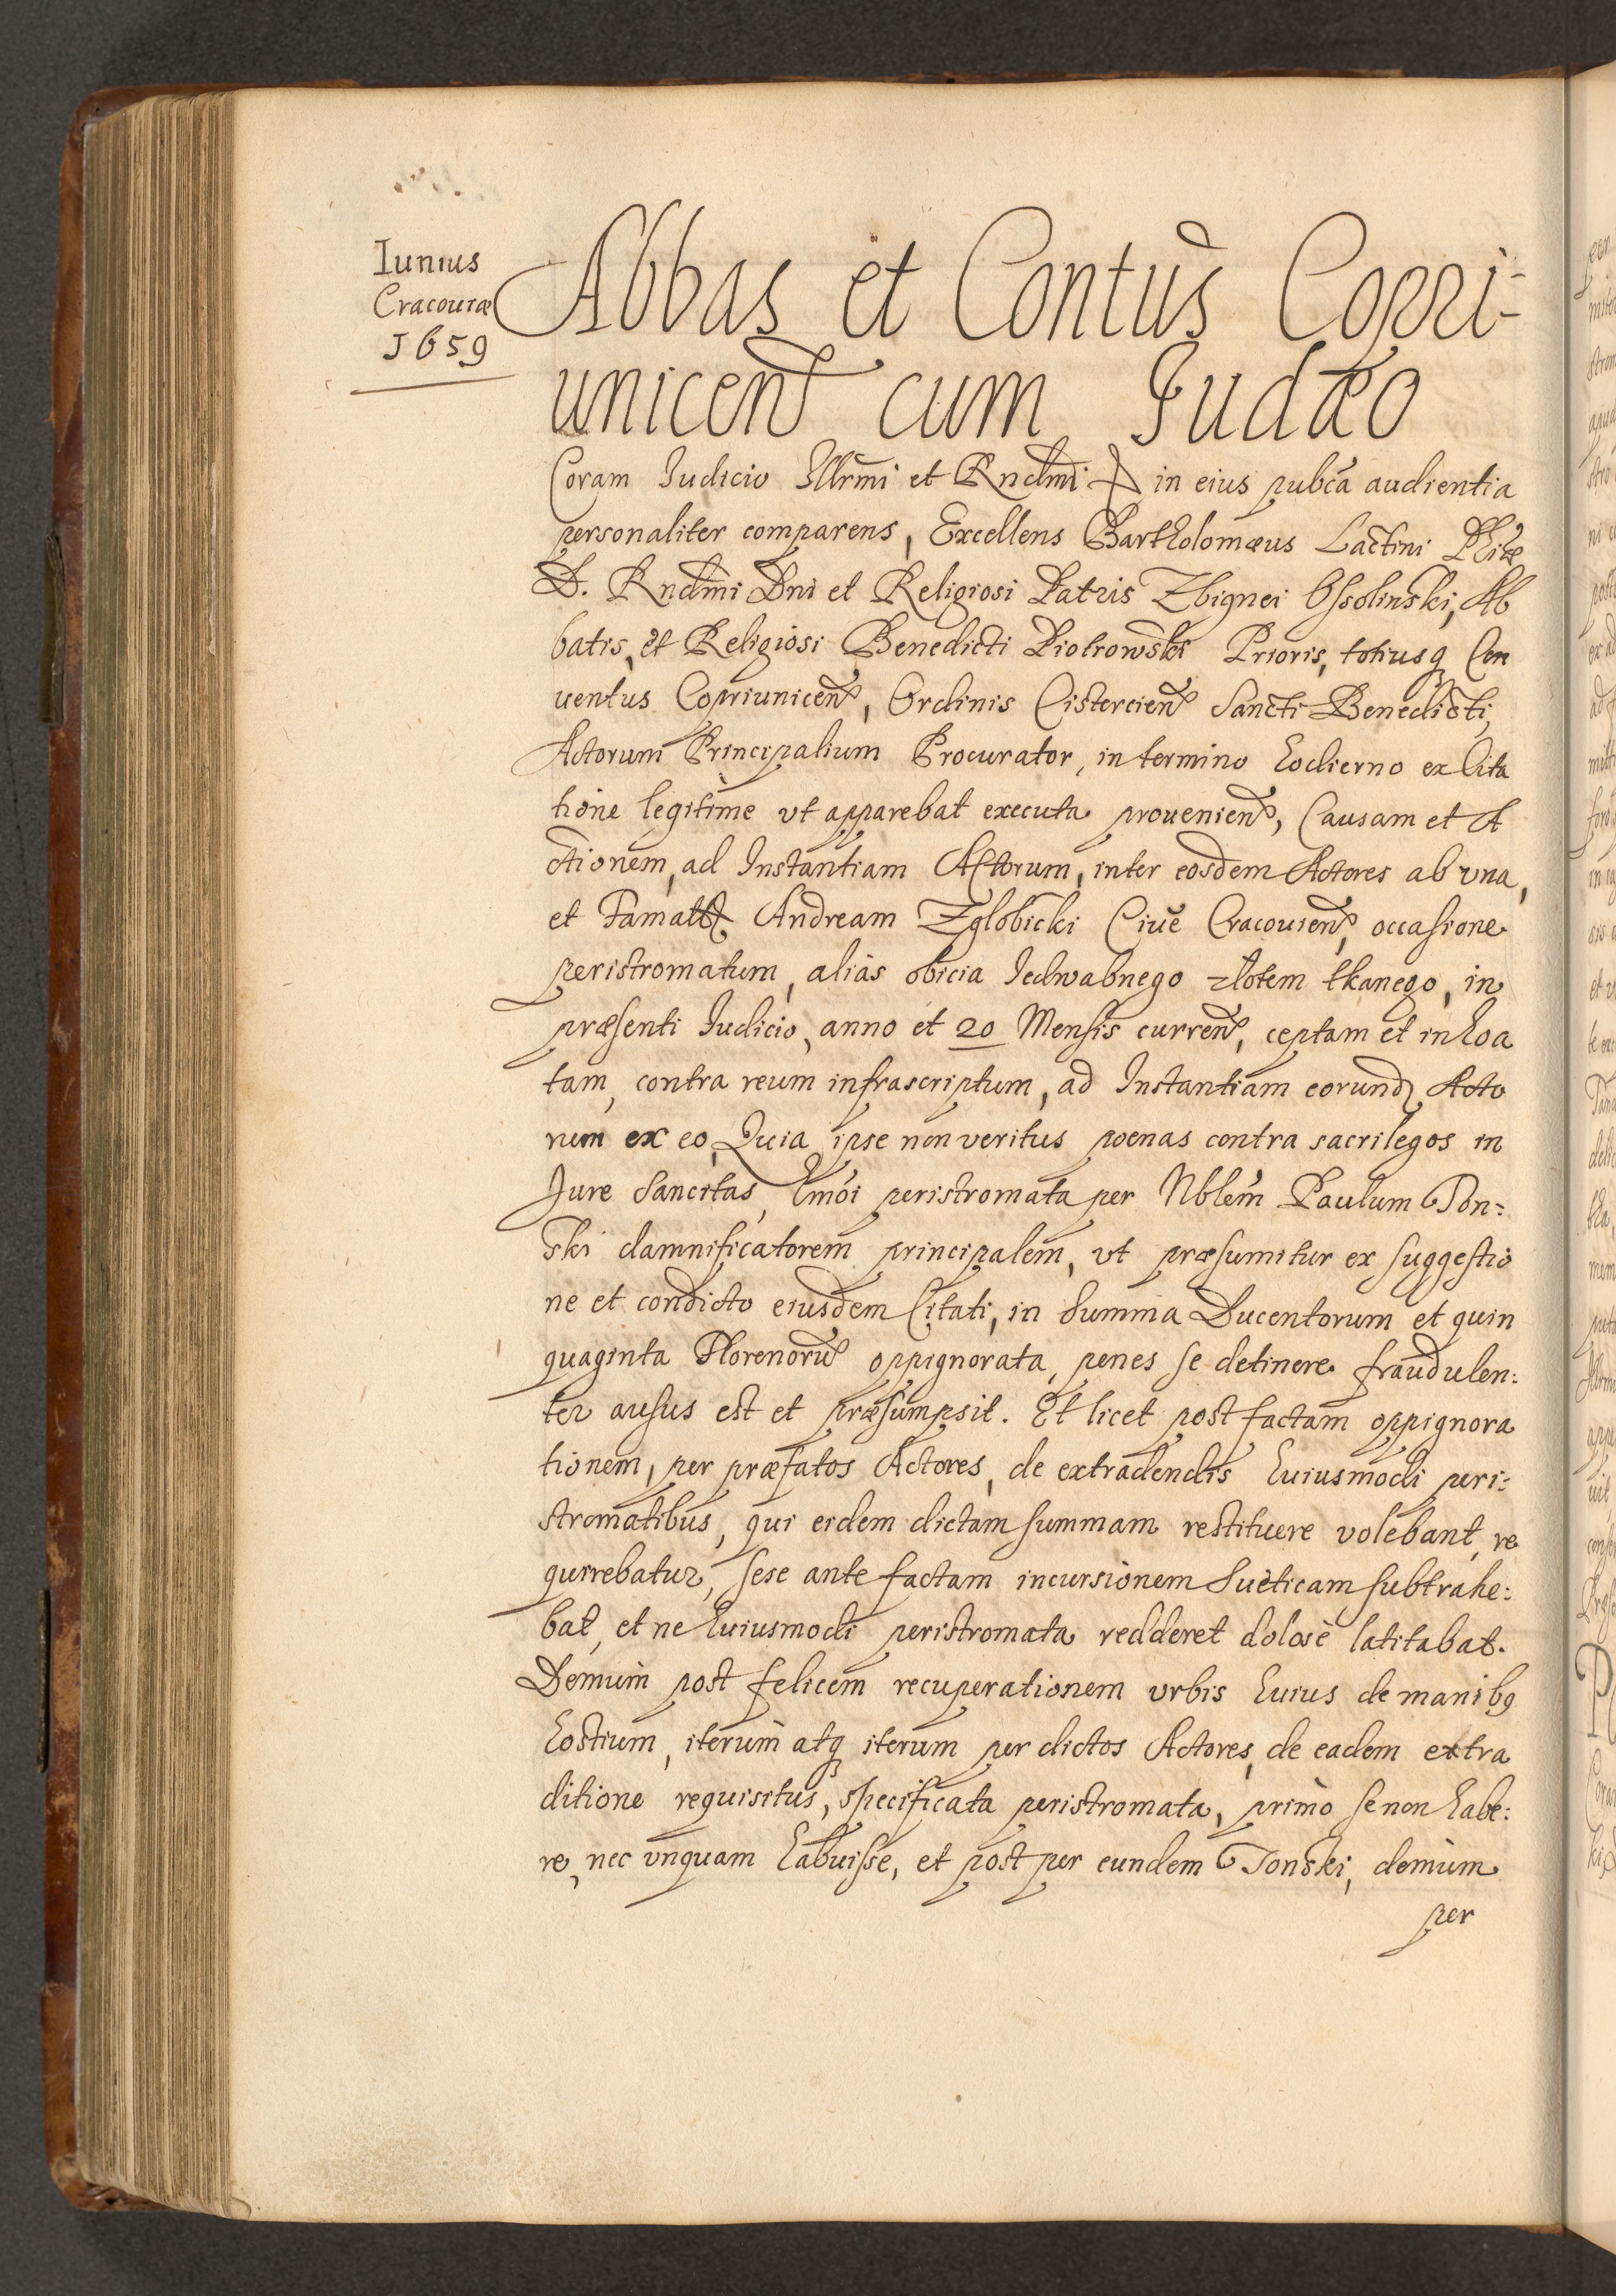 Iunius
Cracouiæ
1659
Abbas et Contus Copri-
unicen cum Iudæo
Coram Iudicio Illrmi et Rndmi D in eius pubca audientia
personaliter comparens, Excellens Bartholomæus Lactini Phiæ
D. Rndmi Dni et Religiosi Patris Zbignei Ossolinski, Ab
batis, et Religiosi Benedicti Piotrowski Prioris, totiusq Con
uentus Copriunicen, Ordinis Cistercien Sancti Benedicti,
Actorum Principalium Procurator, in termino hodierno ex Cita
tione legitime vt apparebat executa prouenien, Causam et A
ctionem, ad Instantiam Actorum, inter eosdem Actores ab vna,
et Famatt Andream Zglobicki Ciue Cracouien, occasione
peristromatum, alias obicia Jedwabnego zlotem tkanego, in
præsenti Iudicio, anno et 20 Mensis curren, ceptam et inhoa
tam, contra reum infrascriptum, ad Instantiam eorund Acto
rum ex eo, Quia ipse non veritus poenas contra sacrilegos in
Jure Sancitas, hmoi peristromata per Nblem Paulum Ton=
ski damnificatorem principalem, vt præsumitur ex suggestio
ne et condicto eiusdem Citati, in Summa Ducentorum et quin
quaginta Florenoru oppignorata, penes se detinere fraudulen:
ter ausus est et præsumpsit. Et licet post factam oppignora
tionem, per præfatos Actores, de extradendis huiusmodi peri:
stromatibus, qui eidem dictam summam restituere volebant, re
quirebatur, sese ante factam incursionem Sueticam subtrahe:
bat, et ne huiusmodi peristromata redderet dolosè latitabat.
Demum post felicem recuperationem vrbis huius de manibq
hostium, iterum atq iterum per dictos Actores, de eadem extra
ditione requisitus, specificata peristromata, primò se non habe:
re, nec vnquam habuisse, et post per eundem Tonski, demum
per